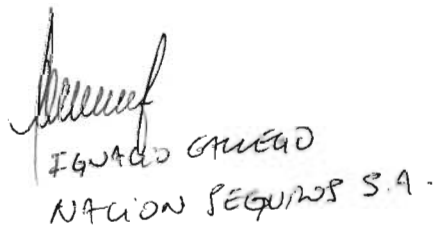 IGNACIO GALLEGO
NACION SEGUROS S.A.